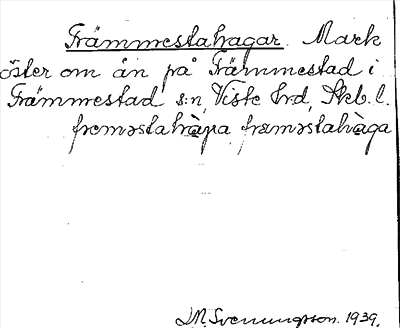 Främmestahagar. Mark
öster om ån på Främmestad i
Främmestad s:n, Viste hrd, Skb. l.
freməstahàga
J.M. Svenungsson. 1939.